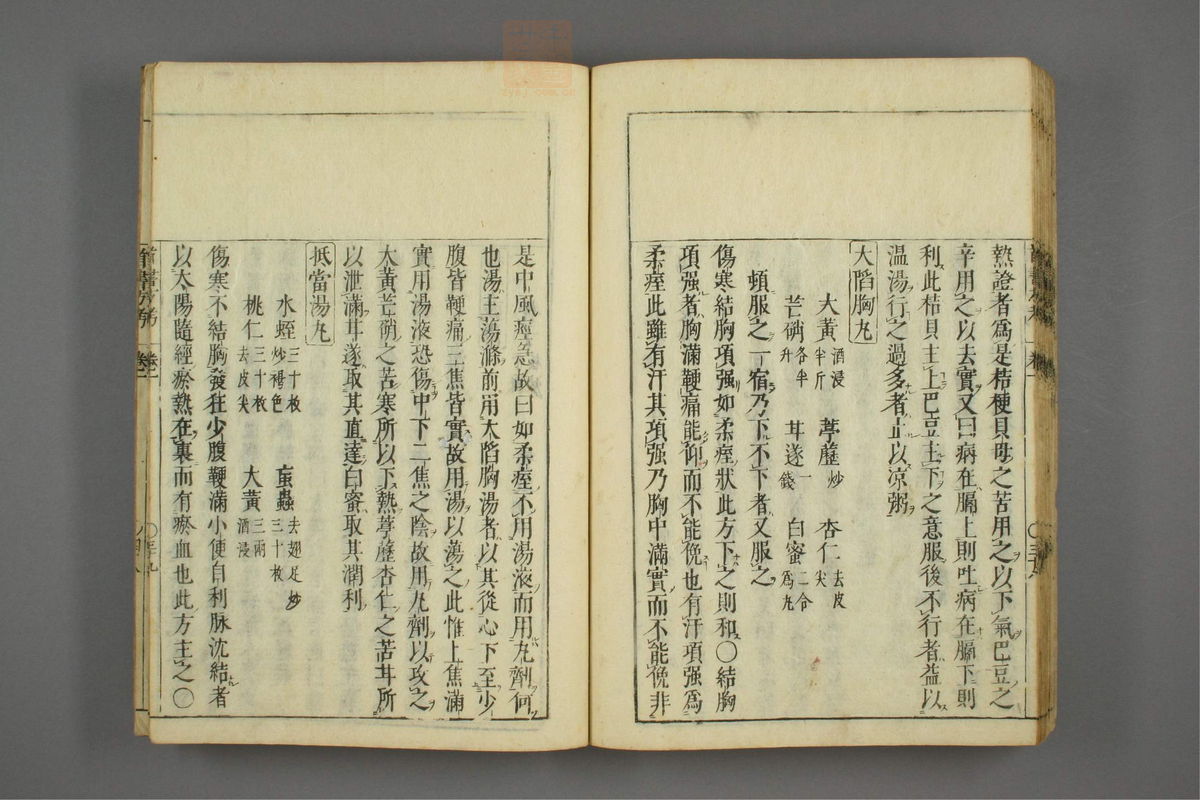 熱證者爲是桔梗貝母之苦用之以下氣巴豆之
辛用之以去實又曰病在膈上則吐病在膈下則
利此桔貝主上巴豆主下之意服後不行者益以
温湯行之過多者止以凉粥
大陷胸丸
大黃酒浸半斤 葶藶炒 杏仁去皮尖
芒硝各半升 甘遂一錢 白蜜二合爲丸
頓服之一宿乃下不下者又服之
傷寒結胸項强如柔痙狀此方下之則和〇結胸
項强者胸滿鞕痛能仰而不能俛也有汗項强爲
柔痙此雖有汗其項强乃胸中滿實而不能俛非
是中風痙急故曰如柔痙不用湯液而用丸劑何
也湯主蕩滌前用大陷胸湯者以其從心下至少
腹皆鞕痛三焦皆實故用湯以蕩之此惟上焦滿
實用湯液恐傷中下二焦之陰故用丸劑以攻之
大黃芒硝之苦寒所以下熱葶藶杏仁之苦甘所
以泄滿甘遂取其直達白蜜取其潤利
抵當湯丸
水蛭三十枚炒褐色 䖟蟲去翅足炒三十枚
桃仁三十枚去皮尖 大黃三兩酒浸
傷寒不結胸發狂少腹鞕滿小便自利脉沈結者
以太陽隨經瘀熱在裏而有瘀血也此方主之〇